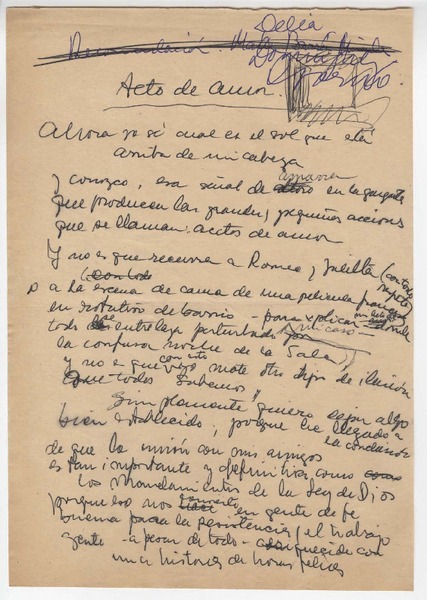 Delia
Recomendación.
Domin
Acto de amor.
Ahora yo sé cual es el sol que está
arriba de mi cabeza
y conozco, esa señal de amarra en la garganta
que producen las grandes y pequeñas acciones
que se llaman: actos de amor
Y no es que recurra a Romeo y Julieta (con todo respeto)
o a la escena de cama de una película
en rotativo de barrio - para explicar mi caso - donde
todo entrelaza perturbado por
la confusa noche de la Sala,
y no es que con esto mote otro tipo de ilusión
que todos sabemos
Simplemente quiero dejar algo
bien establecido, porque he llegado a
la conclusión
de que la unión con mis amigos
es tan importante y definitiva como
los Mandamientos de la Ley de Dios
porque eso nos convierte en gente de fe
buena para la resistencia y el trabajo
gente - a pesar de todo - enriquecida con
una historia de horas felices